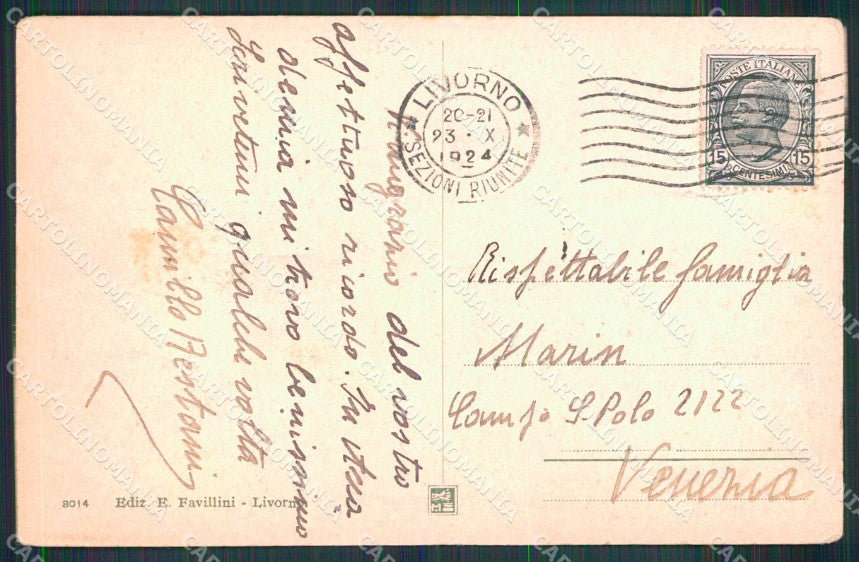 LIVORNO
20-21
23 · X
1924
SEZIONI RIUNITE
POSTE ITALIANE
15 CENTESIMI 15
Ringrazio del vostro
affettuoso ricordo. In
mi trovo benissimo
Scrivetemi qualche volta
Camillo
Rispettabile famiglia
Marin
Campo S. Polo 2122
Venezia
8014 Ediz. E. Favillini - Livorno
CARTOLINOMANIA